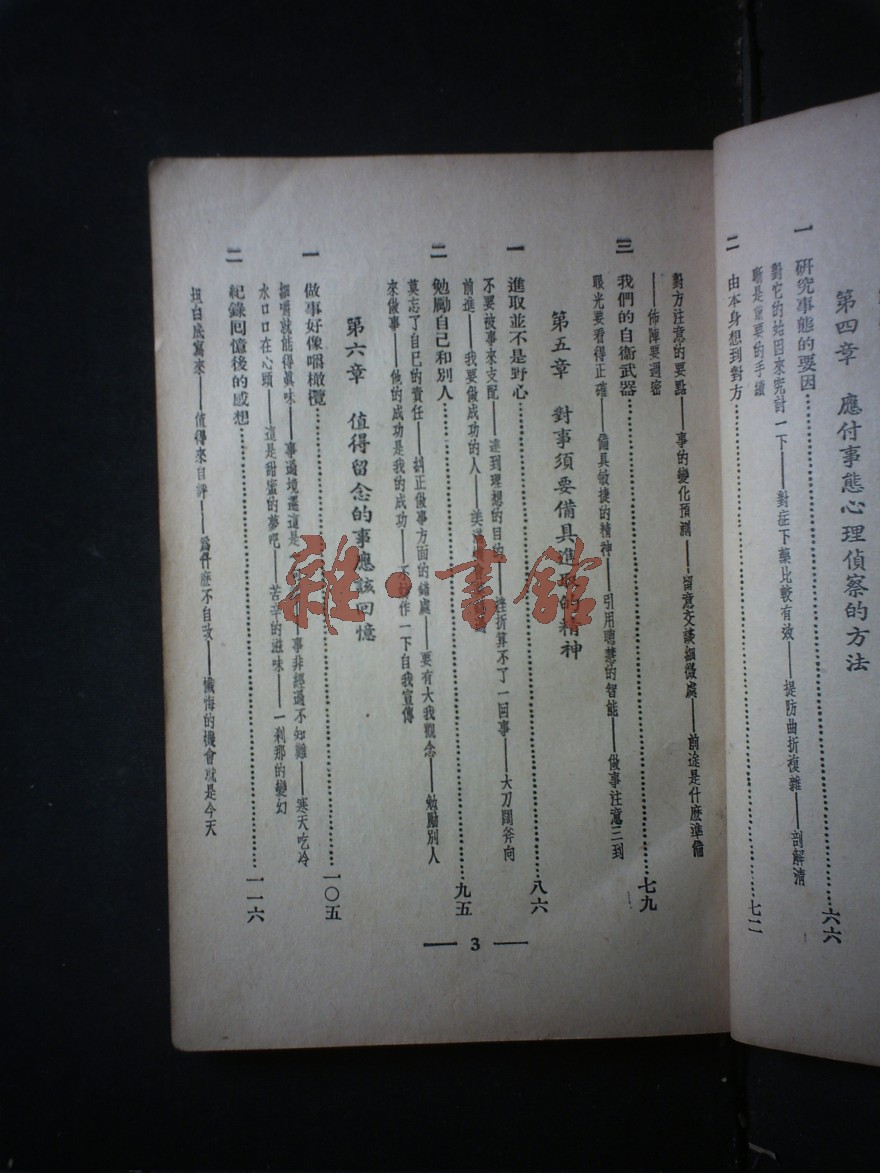 第四章　應付事態心理偵察的方法
一　研究事態的要因………六六
對它的始因來究討一下——對症下藥比較有效——提防曲折複雜——剖解清
晰是重要的手續
二　由本身想到對方………七二
對方注意的要點——事的變化預測——留意交談細微處——前途是什麼準備
——佈陣要週密
三　我們的自衛武器………七九
眼光要看得正確——備具敏捷的精神——引用聰慧的智能——做事注意三到
第五章　對事須要備具進取的精神
一　進取並不是野心………八六
不要被事來支配——達到理想的目的——挫折算不了一回事——大刀闊斧向
前進——我要做成功的人——美滿
二　勉勵自己和別人………九五
莫忘了自己的責任——糾正做事方面的錯處——要有大我觀念——勉勵別人
來做事——他的成功是我的成功——不妨作一下自我宣傳
第六章　值得留念的事應該回憶
一　做事好像嚼橄欖………一〇五
細嚼就能得眞味——事過境遷這是一　事非經過不知難——寒天吃冷
水口口在心頭——這是甜蜜的夢吧——苦辛的滋味——一刹那的變幻
二　紀錄回憶後的感想………一一六
坦白底寫來——值得來自評——爲什麼不自改——懺悔的機會就是今天
3
雜·書館